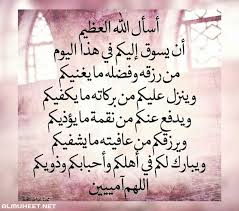 أسأل الله العظيم
أن يسوق إليكم في هذا اليوم
من رزقه وفضله ما يغنيكم
وينزل عليكم من بركاته ما يكفيكم
ويدفع عنكم من نقمة ما يؤذيكم
ويرزقكم من عافيته ما يشفيكم
ويبارك لكم في أهلكم وأحبابكم وذويكم
اللهم آميييين
ALMUHEET.NET